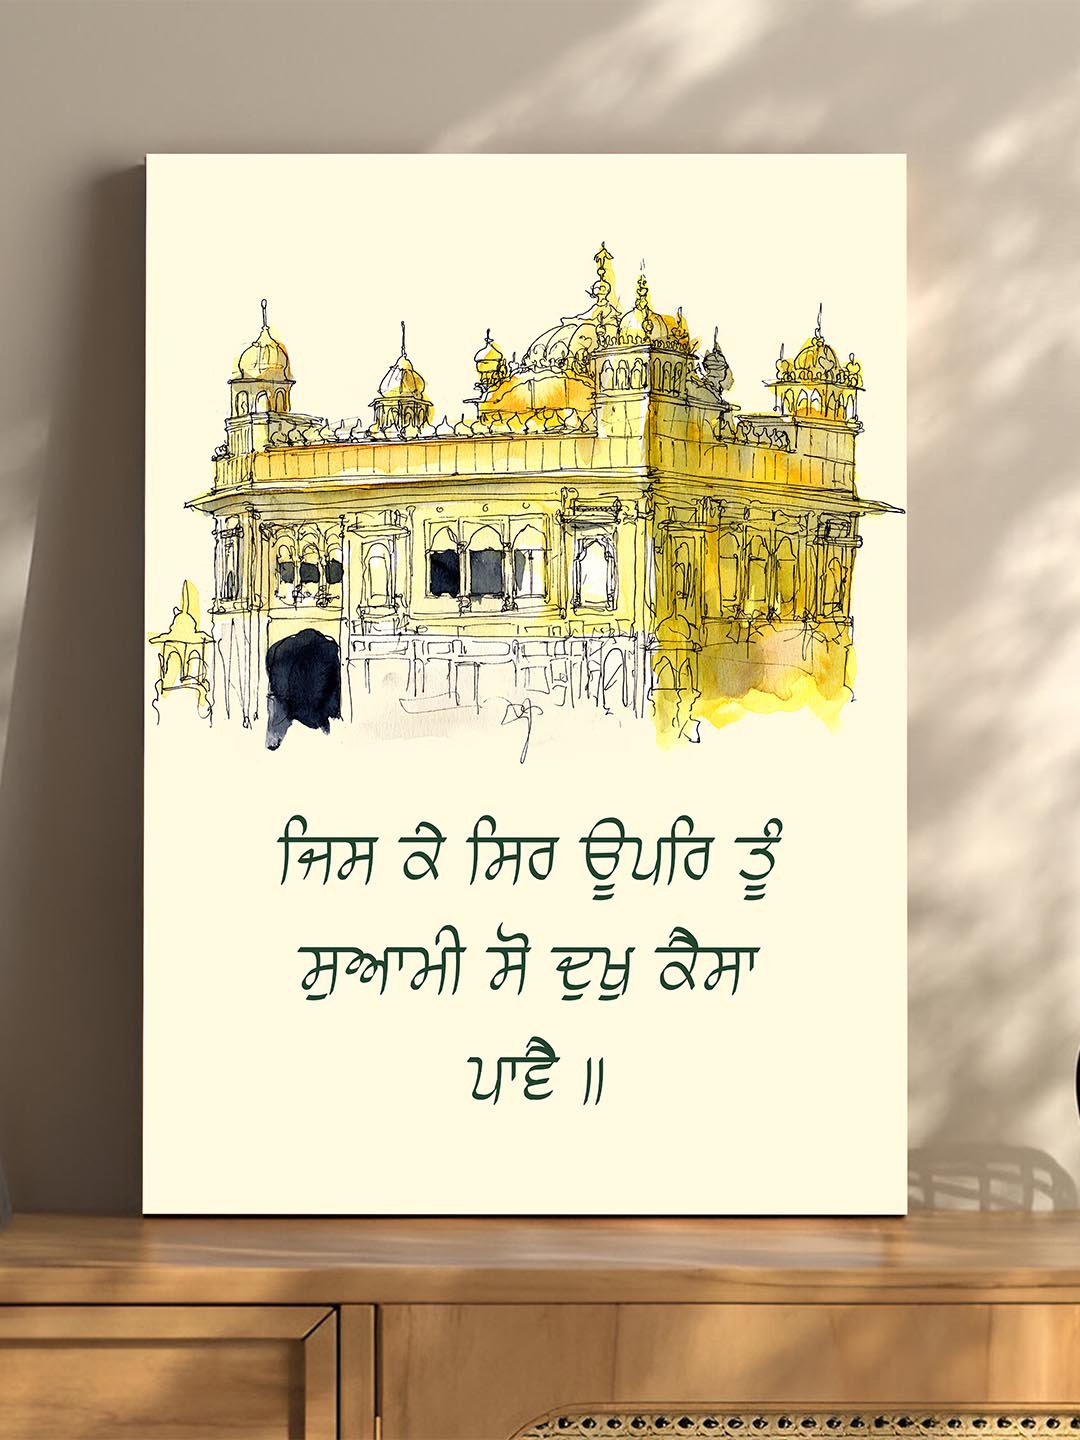 ਜਿਸ ਕੇ ਸਿਰ ਊਪਰਿ ਤੂੰ
ਸੁਆਮੀ ਸੋ ਦੁਖੁ ਕੈਸਾ
ਪਾਵੈ ॥